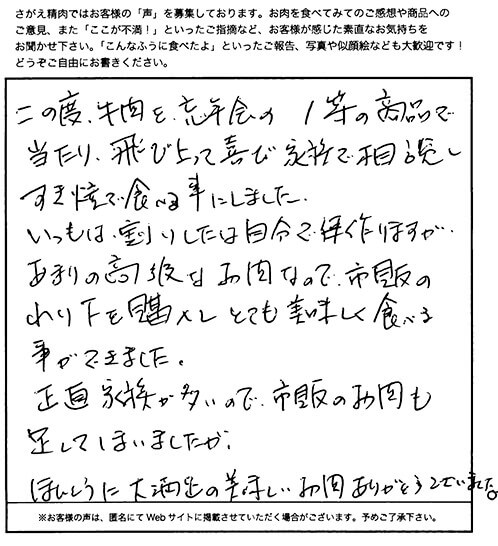 さがえ精肉ではお客様の「声」を募集しております。お肉を食べてみてのご感想や商品への
ご意見、また「ここが不満!」といったご指摘など、お客様が感じた素直なお気持ちを
お聞かせ下さい。「こんなふうに食べたよ」といったご報告、写真や似顔絵なども大歓迎です!
どうぞご自由にお書きください。
この度、牛肉を、忘年会の 1等の商品で
当たり、飛び上って喜び家族で相談し
すき焼で食べる事にしました。
いつもは、割りしたは自分で作りますが、
あまりの高級なお肉なので、市販の
わり下を購入しとても美味しく食べる
事ができました。
正直家族が多いので、市販のお肉も
足してしまいましたが、
ほんとうに大満足の美味しいお肉ありがとうございました。
※お客様の声は、匿名にてWebサイトに掲載させていただく場合がございます。予めご了承下さい。